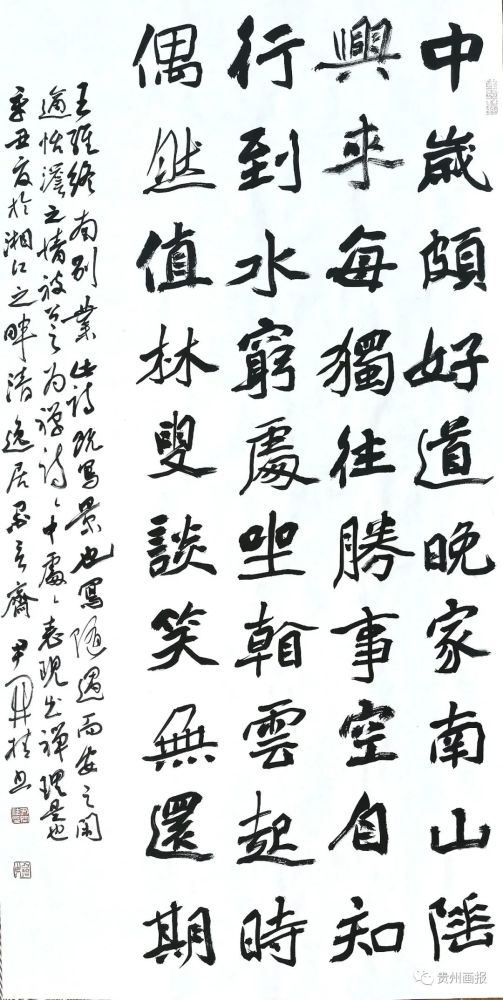 中歲頗好道晚家南山陲
興來每獨往勝事空自知
行到水窮處坐看雲起時
偶然值林叟談笑無還期
王維終南別業此詩既寫景也寫隨遇而安之閑
適恬澹之情被為禪詩々中處々表現出禪理是也
辛丑夏於湘江之畔清逸居齋 尹書
贵州画报